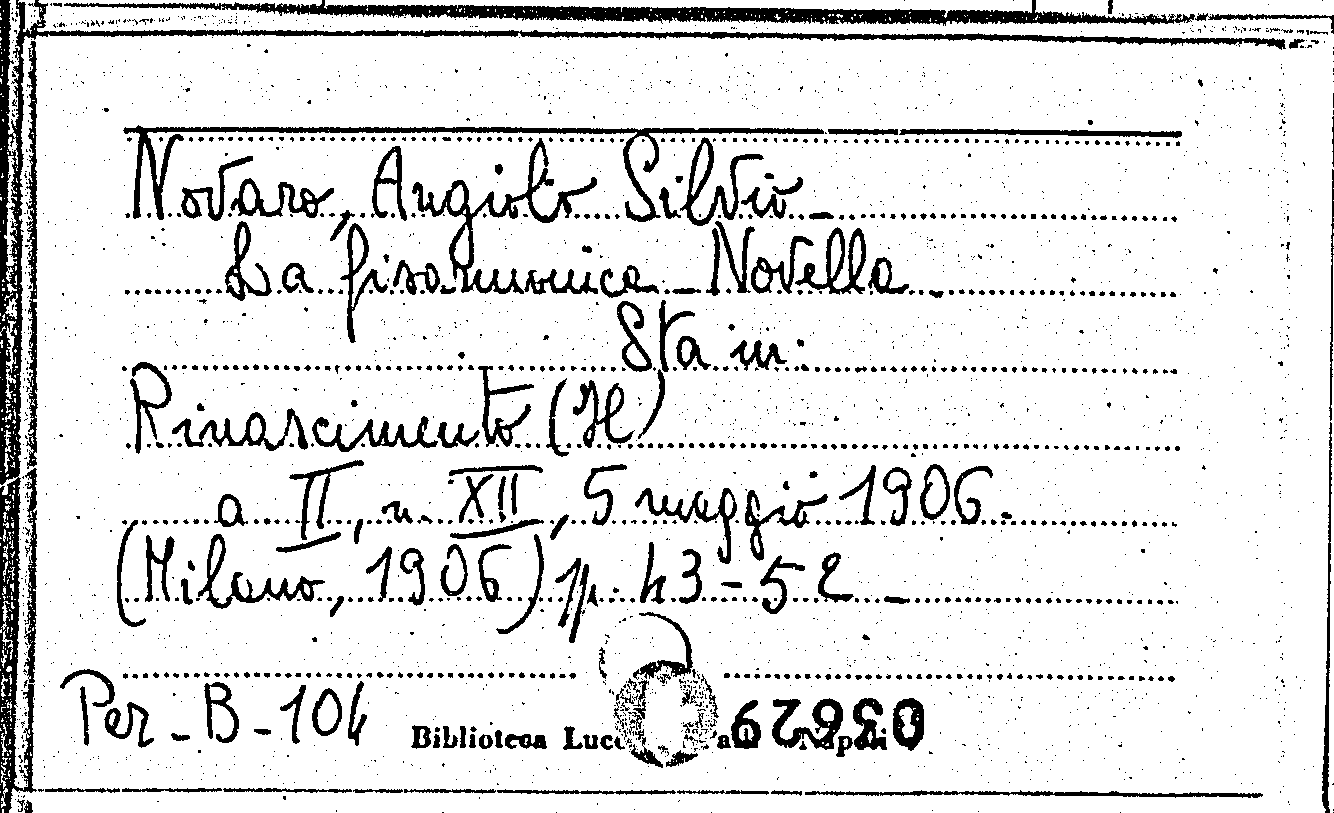 Novaro, Angiolo Silvio -
La fisarmonica - Novella.
Sta in:
Rinascimento (Il)
a II, n. XII, 5 maggio 1906.
(Milano, 1906) pp. 43-52 -
Per - B - 104
Biblioteca Napoli